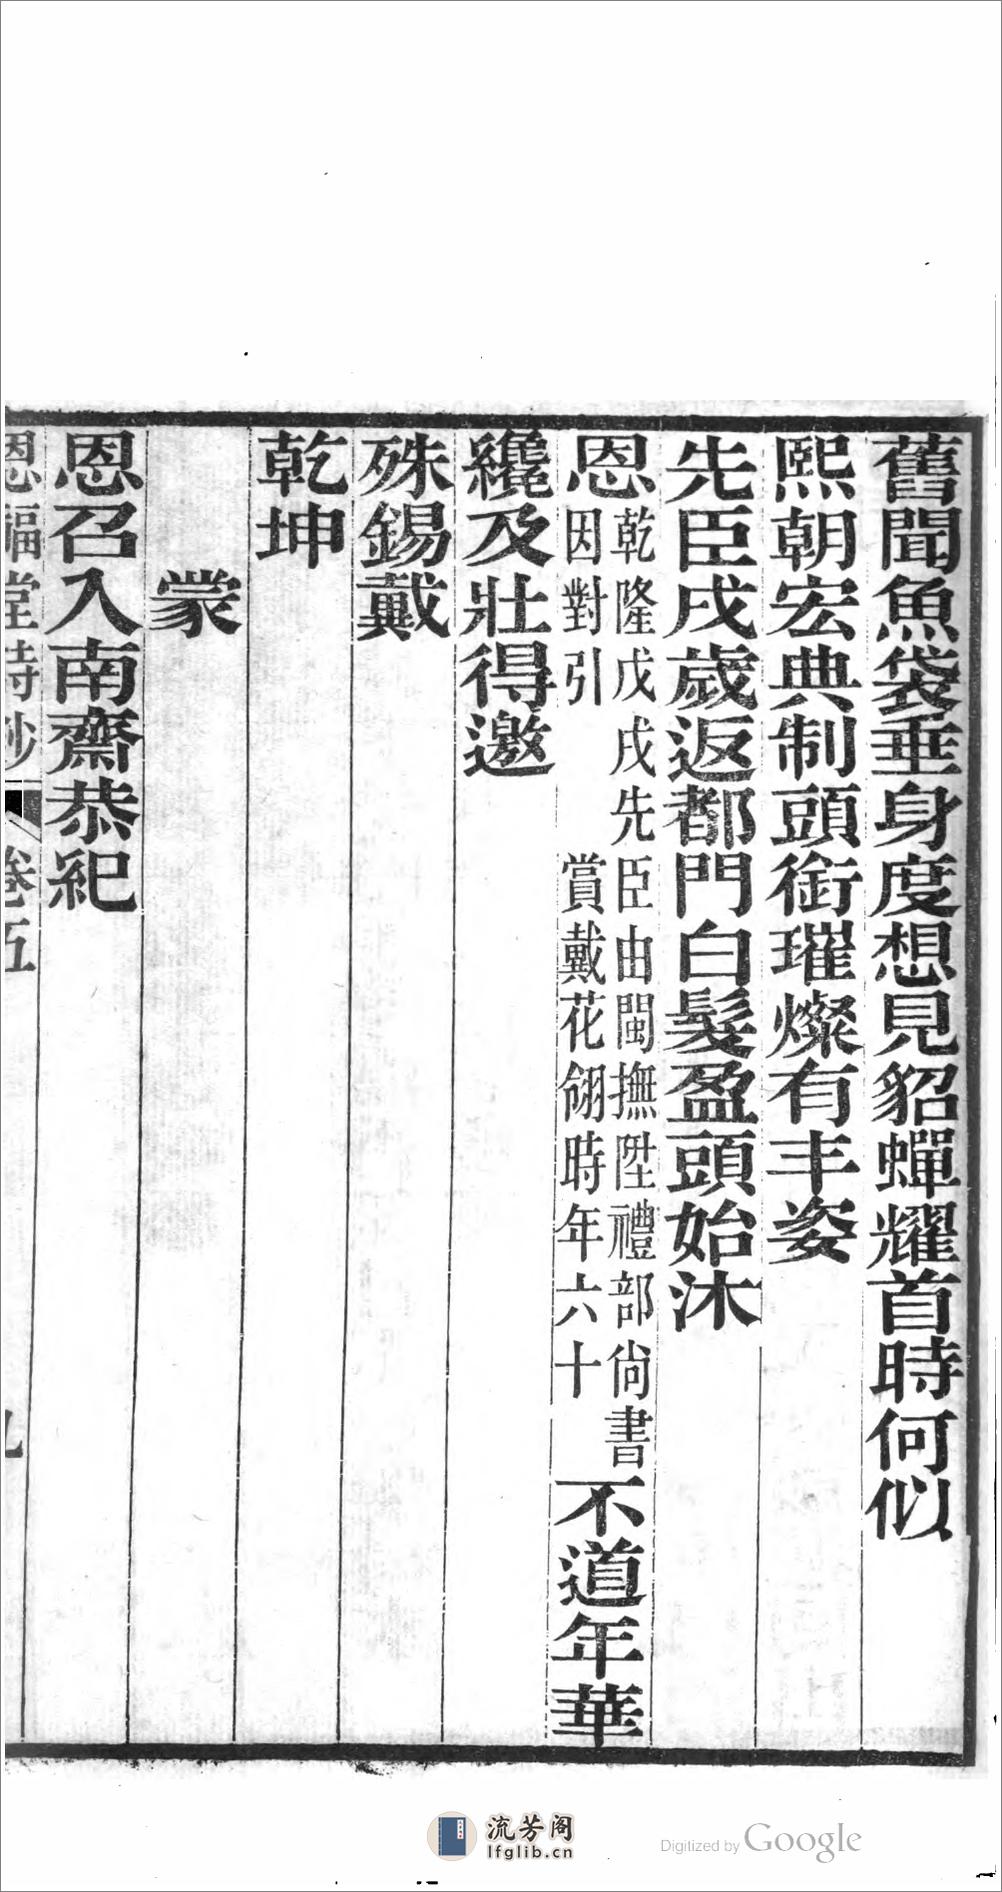 舊聞魚袋垂身度想見貂蟬耀首時何似
熙朝宏典制頭銜璀燦有丰姿
先臣戌歲返都門白髮盈頭始沐
恩乾隆戊戌先臣由閩撫陞禮部尙書
因對引賞戴花翎時年六十不道年華
纔及壯得邀
殊錫戴
乾坤
蒙
恩召入南齋恭紀
恩福堂詩鈔 卷五 九
流芳阁
lfglib.cn
Digitized by Google